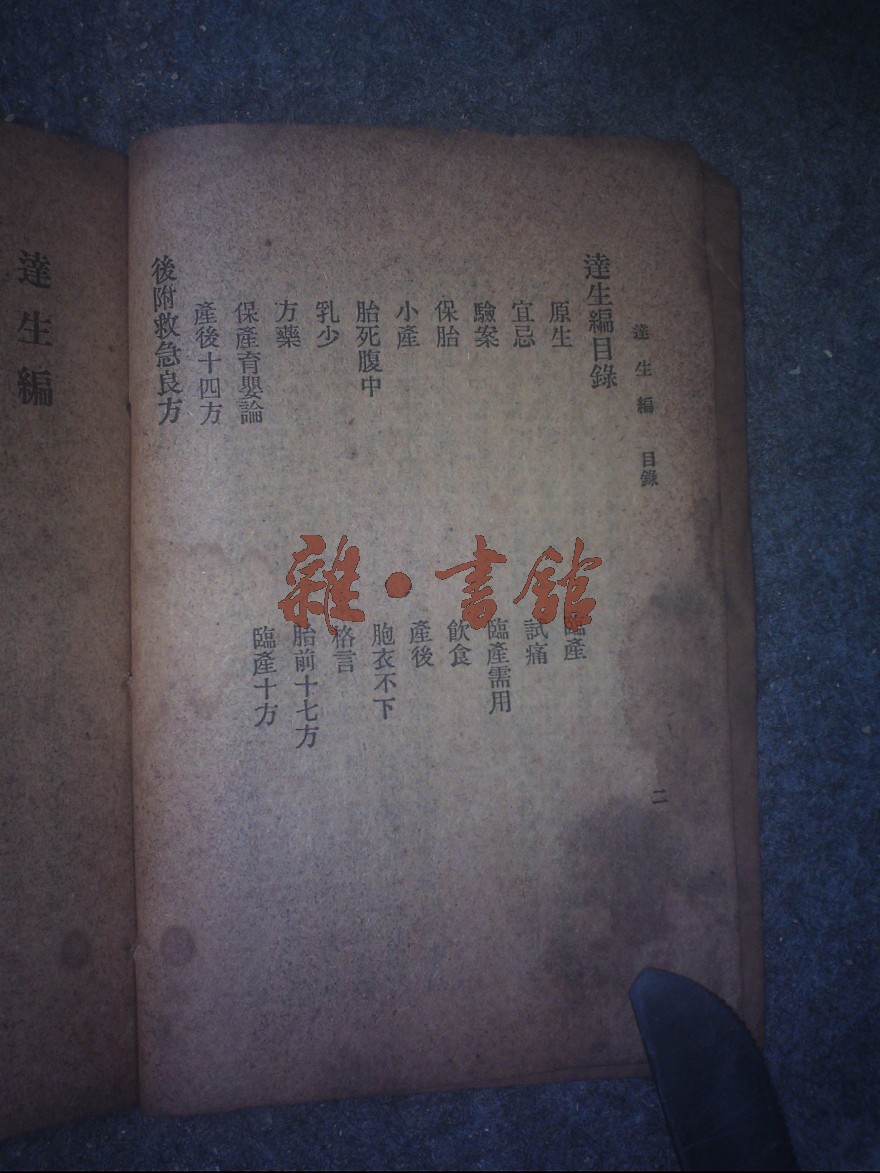 達生編 目錄 二
達生編目錄
原生 臨產
宜忌 試痛
驗案 臨產需用
保胎 飲食
小產 產後
胎死腹中 胞衣不下
乳少 格言
方藥 胎前十七方
保產育嬰論 臨產十方
產後十四方
後附救急良方
達生編
雜·書館